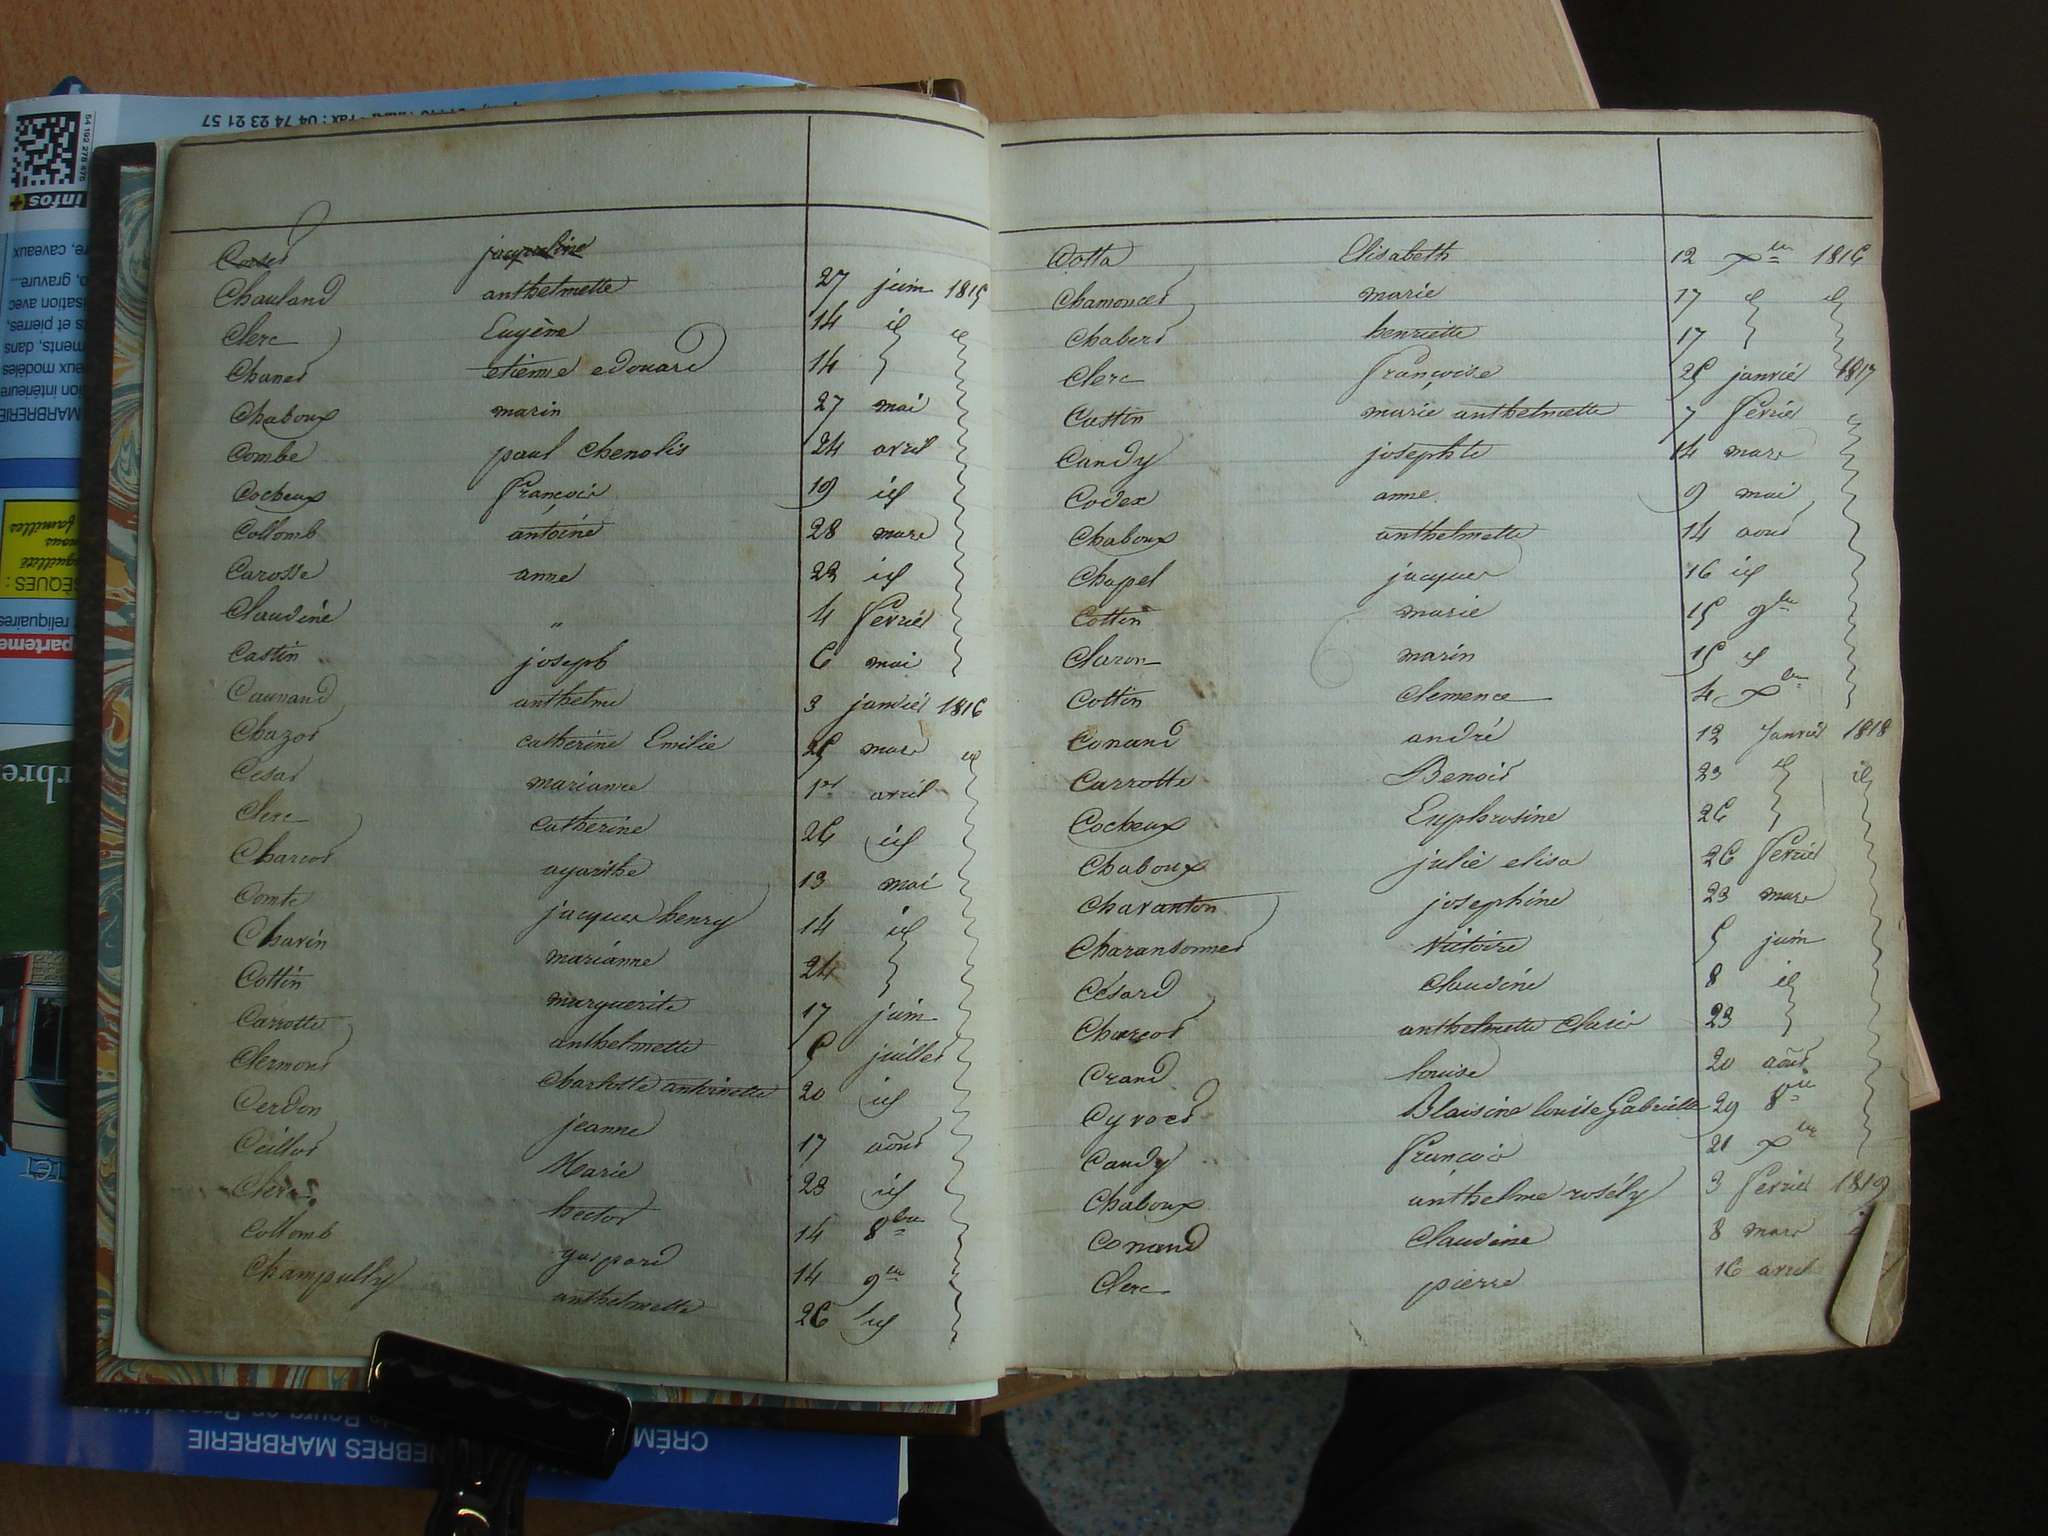 Corset jacqueline
Chauland anthelmette 27 juin 1815
Clerc Eugène 14 id id
Chanet etienne edouard 14
Chaboux marin 27 mai
Combe paul 24 avril
Cocheux francois 19 id
Collomb antoine 28 mars
Carosse anne 23 id
Claudine " 4 fevrier
Castin joseph 6 mai
Caunand anthelme 3 janvier 1816
Chazot catherine Emilie 25 mars id
Cesar marianne 1er avril
Clerc catherine 26 id
Charcot agarithe 13 mai
Comte jacques henry 14 id
Chavin marianne 24
Cottin marguerite 17 juin
Carrotte anthelmette 5 juillet
Clermont Charlotte antoinette 20 id
Cerdon jeanne 17 août
Ceillot Marie 23 id
Clerc hector 14 8bre
Collomb gaspard 14 9bre
Champully anthelmette 26 id
Cotta Elisabeth 12 xbre 1816
Chamoncet marie 17 id id
Chabert henriette 17
Clerc françoise 25 janvier 1817
Castin marie anthelmette 7 fevrier id
Candy josephte 14 mars
Codex anne 9 mai
Chaboux anthelmette 14 aout
Chapel jacques 16 id
Cottin marie 15 9bre
Claron marin 15 id
Cottin Clemence 4 xbre
Conand andré 12 Janvier 1818
Carrotte Benoit 23 id id
Cocheux Euphrosine 26
Chaboux julie elisa 26 fevrier
Chavanton josephine 23 mars
Charansonnet Victoire 5 juin
César Claudine 8 id
Charcot anthelmette 23
Crand louise 20 août
Cyvoct Blaisine louise Gabrielle 29 8bre
Candy francois 21 xbre
Chaboux anthelme rosély 3 fevrier 1819
Conand Claudine 8 mars
Clerc pierre 16 avril
Fax : 04 74 23 21 57
54 192 278 476
infos+
re, caveaux
o, gravure...
isation avec
ts et pierres,
ments, dans
eux modèles
ion intérieure
MARBRERIE
familles
nous
SÈQUES :
reliquaires
parteme
NÈBRES MARBRERIE
CRÉM